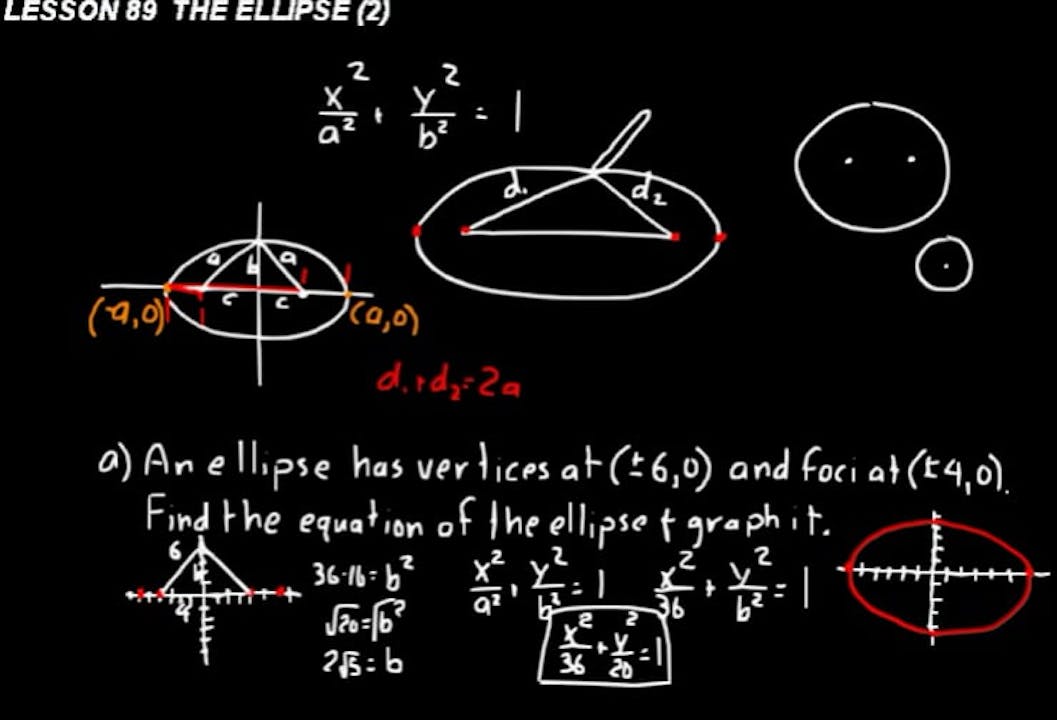 LESSON 89 THE ELLIPSE (2)
x²/a² + y²/b² = 1
d₁ d₂
a b a
c c
(-a,0) (a,0)
d₁+d₂=2a
a) An ellipse has vertices at (±6,0) and foci at (±4,0).
Find the equation of the ellipse + graph it.
6
4
36-16=b²
√20=√b²
2√5=b
x²/a² + y²/b² = 1
x²/36 + y²/b² = 1
x²/36 + y²/20 = 1